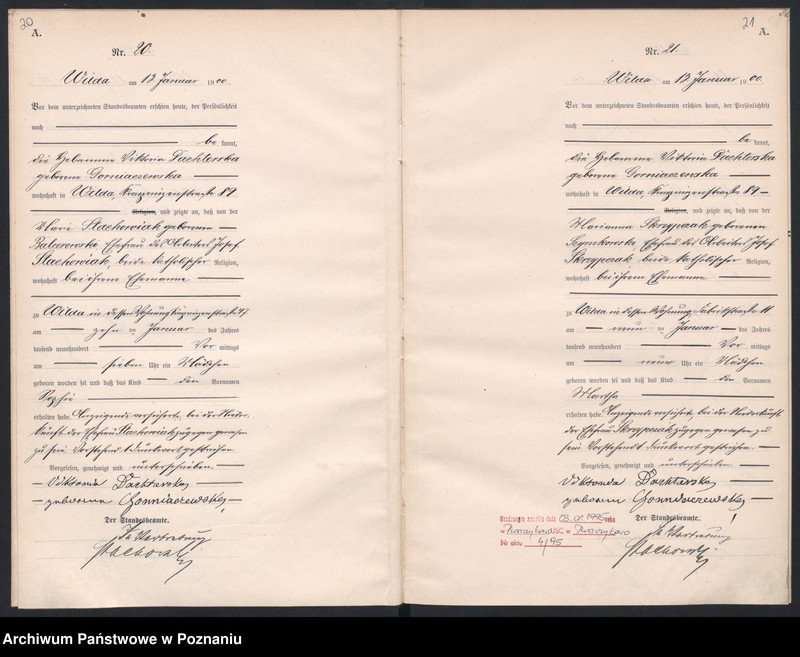 20
A.
Nr. 20.
Wilda am 12 Januar 1900.
Vor dem unterzeichneten Standesbeamten erschien heute, der Persönlichkeit
nach
be kannt,
die Hebamme Viktoria Dachterska
geborene Gorniaczewska
wohnhaft in Wilda, Kronprinzenstraße 89
Religion, und zeigte an, daß von der
Mari Stachowiak geborenen
Ehefrau des Arbeiters Josef
Stachowiak, beide katholischer Religion,
wohnhaft bei ihrem Ehemanne
zu Wilda in dessen Wohnung Kronprinzenstraße 47
am zehn ten Januar des Jahres
tausend neunhundert Vor mittags
um sieben Uhr ein Mädchen
geboren worden sei und daß das Kind den Vornamen
Sophie
erhalten habe. Anzeigende versicherte, bei der Nieder-
kunft der Ehefrau Stachowiak zugegen gewesen
zu sein. Vorstehend Druckwort gestrichen.
Vorgelesen, genehmigt und unterschrieben.
Viktoria Dachterska
geborene Gorniaczewska
Der Standesbeamte.
In Vertretung
21
A.
Nr. 21.
Wilda am 12 Januar 1900.
Vor dem unterzeichneten Standesbeamten erschien heute, der Persönlichkeit
nach
be kannt,
die Hebamme Viktoria Dachterska
geborene Gorniaczewska
wohnhaft in Wilda, Kronprinzenstraße 89
Religion, und zeigte an, daß von der
Marianna Skrzypczak geborenen
Szymkowska, Ehefrau des Arbeiters Josef
Skrzypczak beide katholischer Religion,
wohnhaft bei ihrem Ehemanne
zu Wilda in dessen Wohnung, Fabrikstraße 11
am neun ten Januar des Jahres
tausend neunhundert Vor mittags
um neun Uhr ein Mädchen
geboren worden sei und daß das Kind den Vornamen
Martha
erhalten habe. Anzeigende versicherte, bei der Niederkunft
der Ehefrau Skrzypczak zugegen gewesen zu
sein. Vorstehendt Druckwort gestrichen.
Vorgelesen, genehmigt und unterschrieben.
Viktoria Dachterska
geborene Gorniaczewska
Der Standesbeamte.
In Vertretung
03.01.1995 roku
w USC w
Nr aktu 4/95
Archiwum Państwowe w Poznaniu